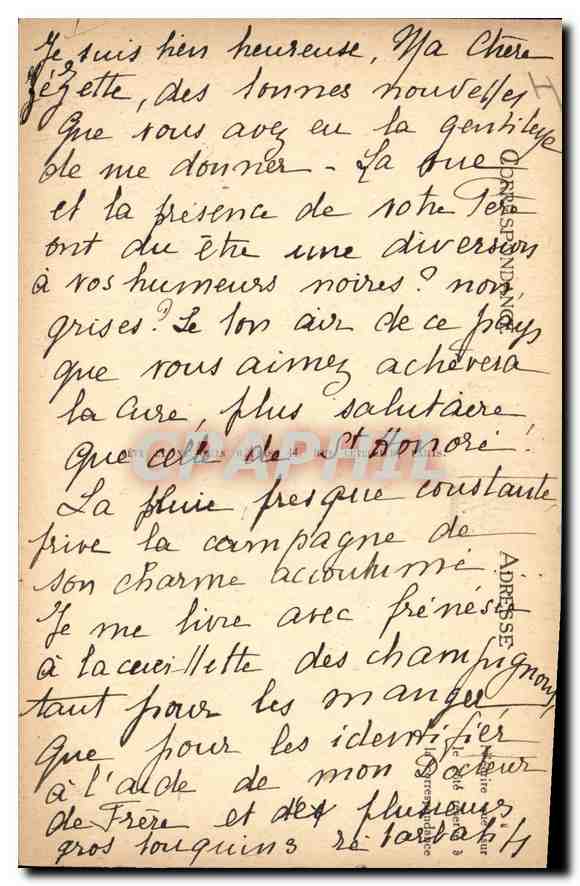 Je suis bien heureuse, Ma Chère
Zézette, des bonnes nouvelles
que vous avez eu la gentillesse
de me donner - La vue
et la présence de votre Père
ont du être une diversion
à vos humeurs noires? non,
grises? Le bon air de ce pays
que vous aimez achèvera
la cure, plus salutaire
que celle de St Honoré!
La pluie, presque constante,
prive la campagne de
son charme accoutumé...
Je me livre avec frénésie
à la cueillette des champignons,
tant pour les manger,
que pour les identifier
à l'aide de mon Docteur
de Frère et des plusieurs
gros bouquins
CORRESPONDANCE
ADRESSE
CPAPHIL